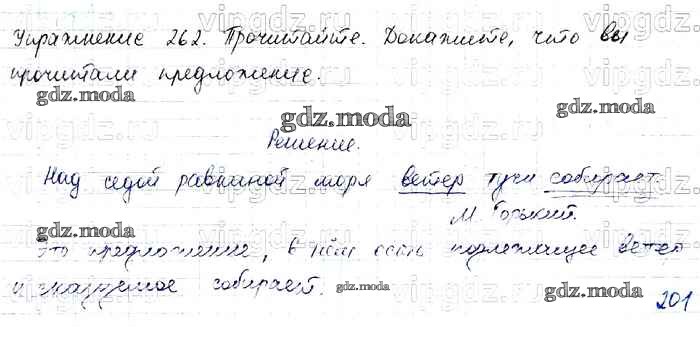 Упражнение 262. Прочитайте. Докажите, что вы
прочитали предложение.
gdz.moda
gdz.moda
gdz.moda
Решение.
Над седой равниной моря ветер тучи собирает.
М. Горький.
gdz.moda
gdz.moda
Это предложение, в нём есть подлежащее ветер
и сказуемое собирает.
gdz.moda
gdz.moda
201